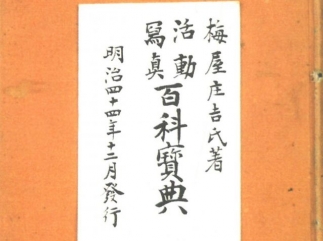 梅屋庄吉氏著
活動寫眞百科寶典
明治四十四年十二月發行